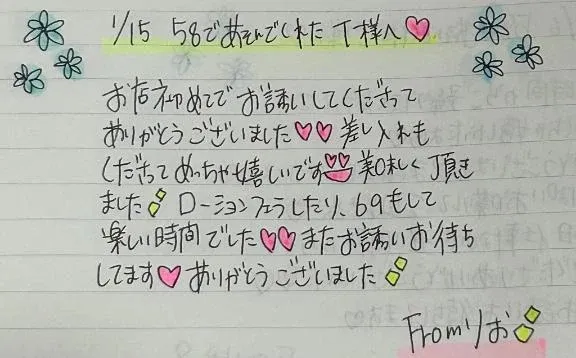 1/15 58であそんでくれた T様へ♡
お店初めてで お誘いしてくださって
ありがとうございました♡♡ 差し入れも
くださってめっちゃ嬉しいです 美味しく頂き
ました ローションフェラしたり、69もして
楽しい時間でした♡♡ またお誘いお待ち
してます♡ ありがとうございました
From りお